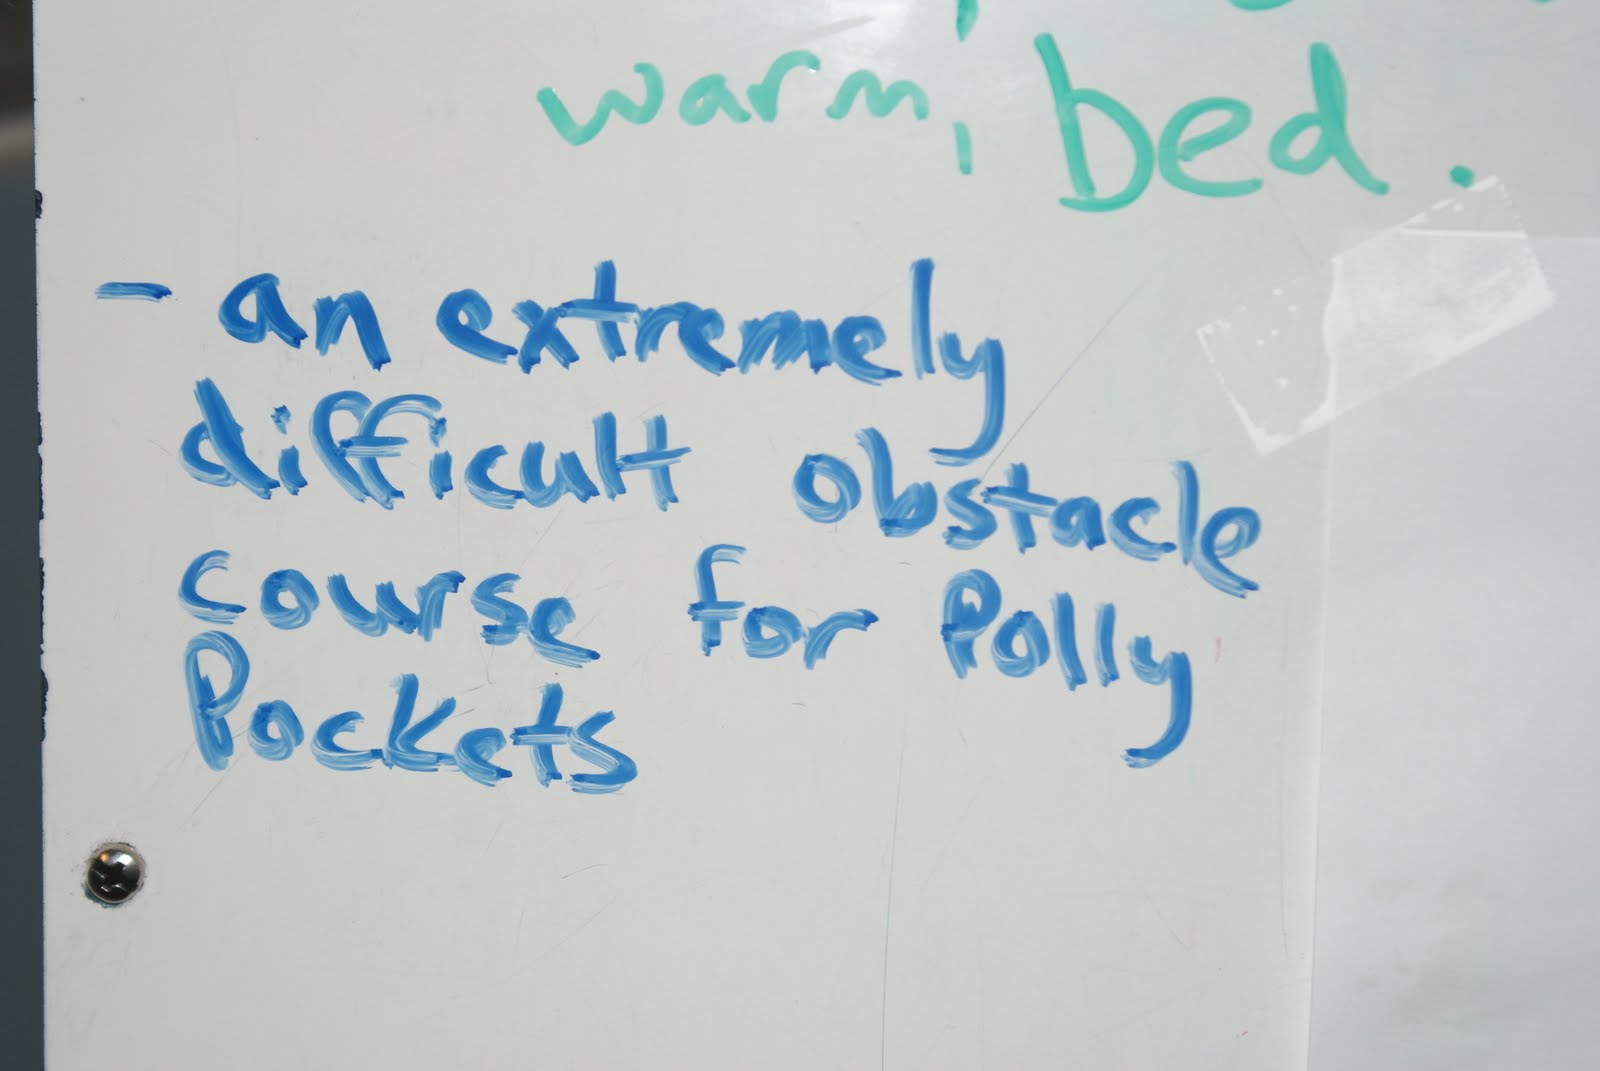 warm, bed.
- an extremely
difficult obstacle
course for Polly
Pockets